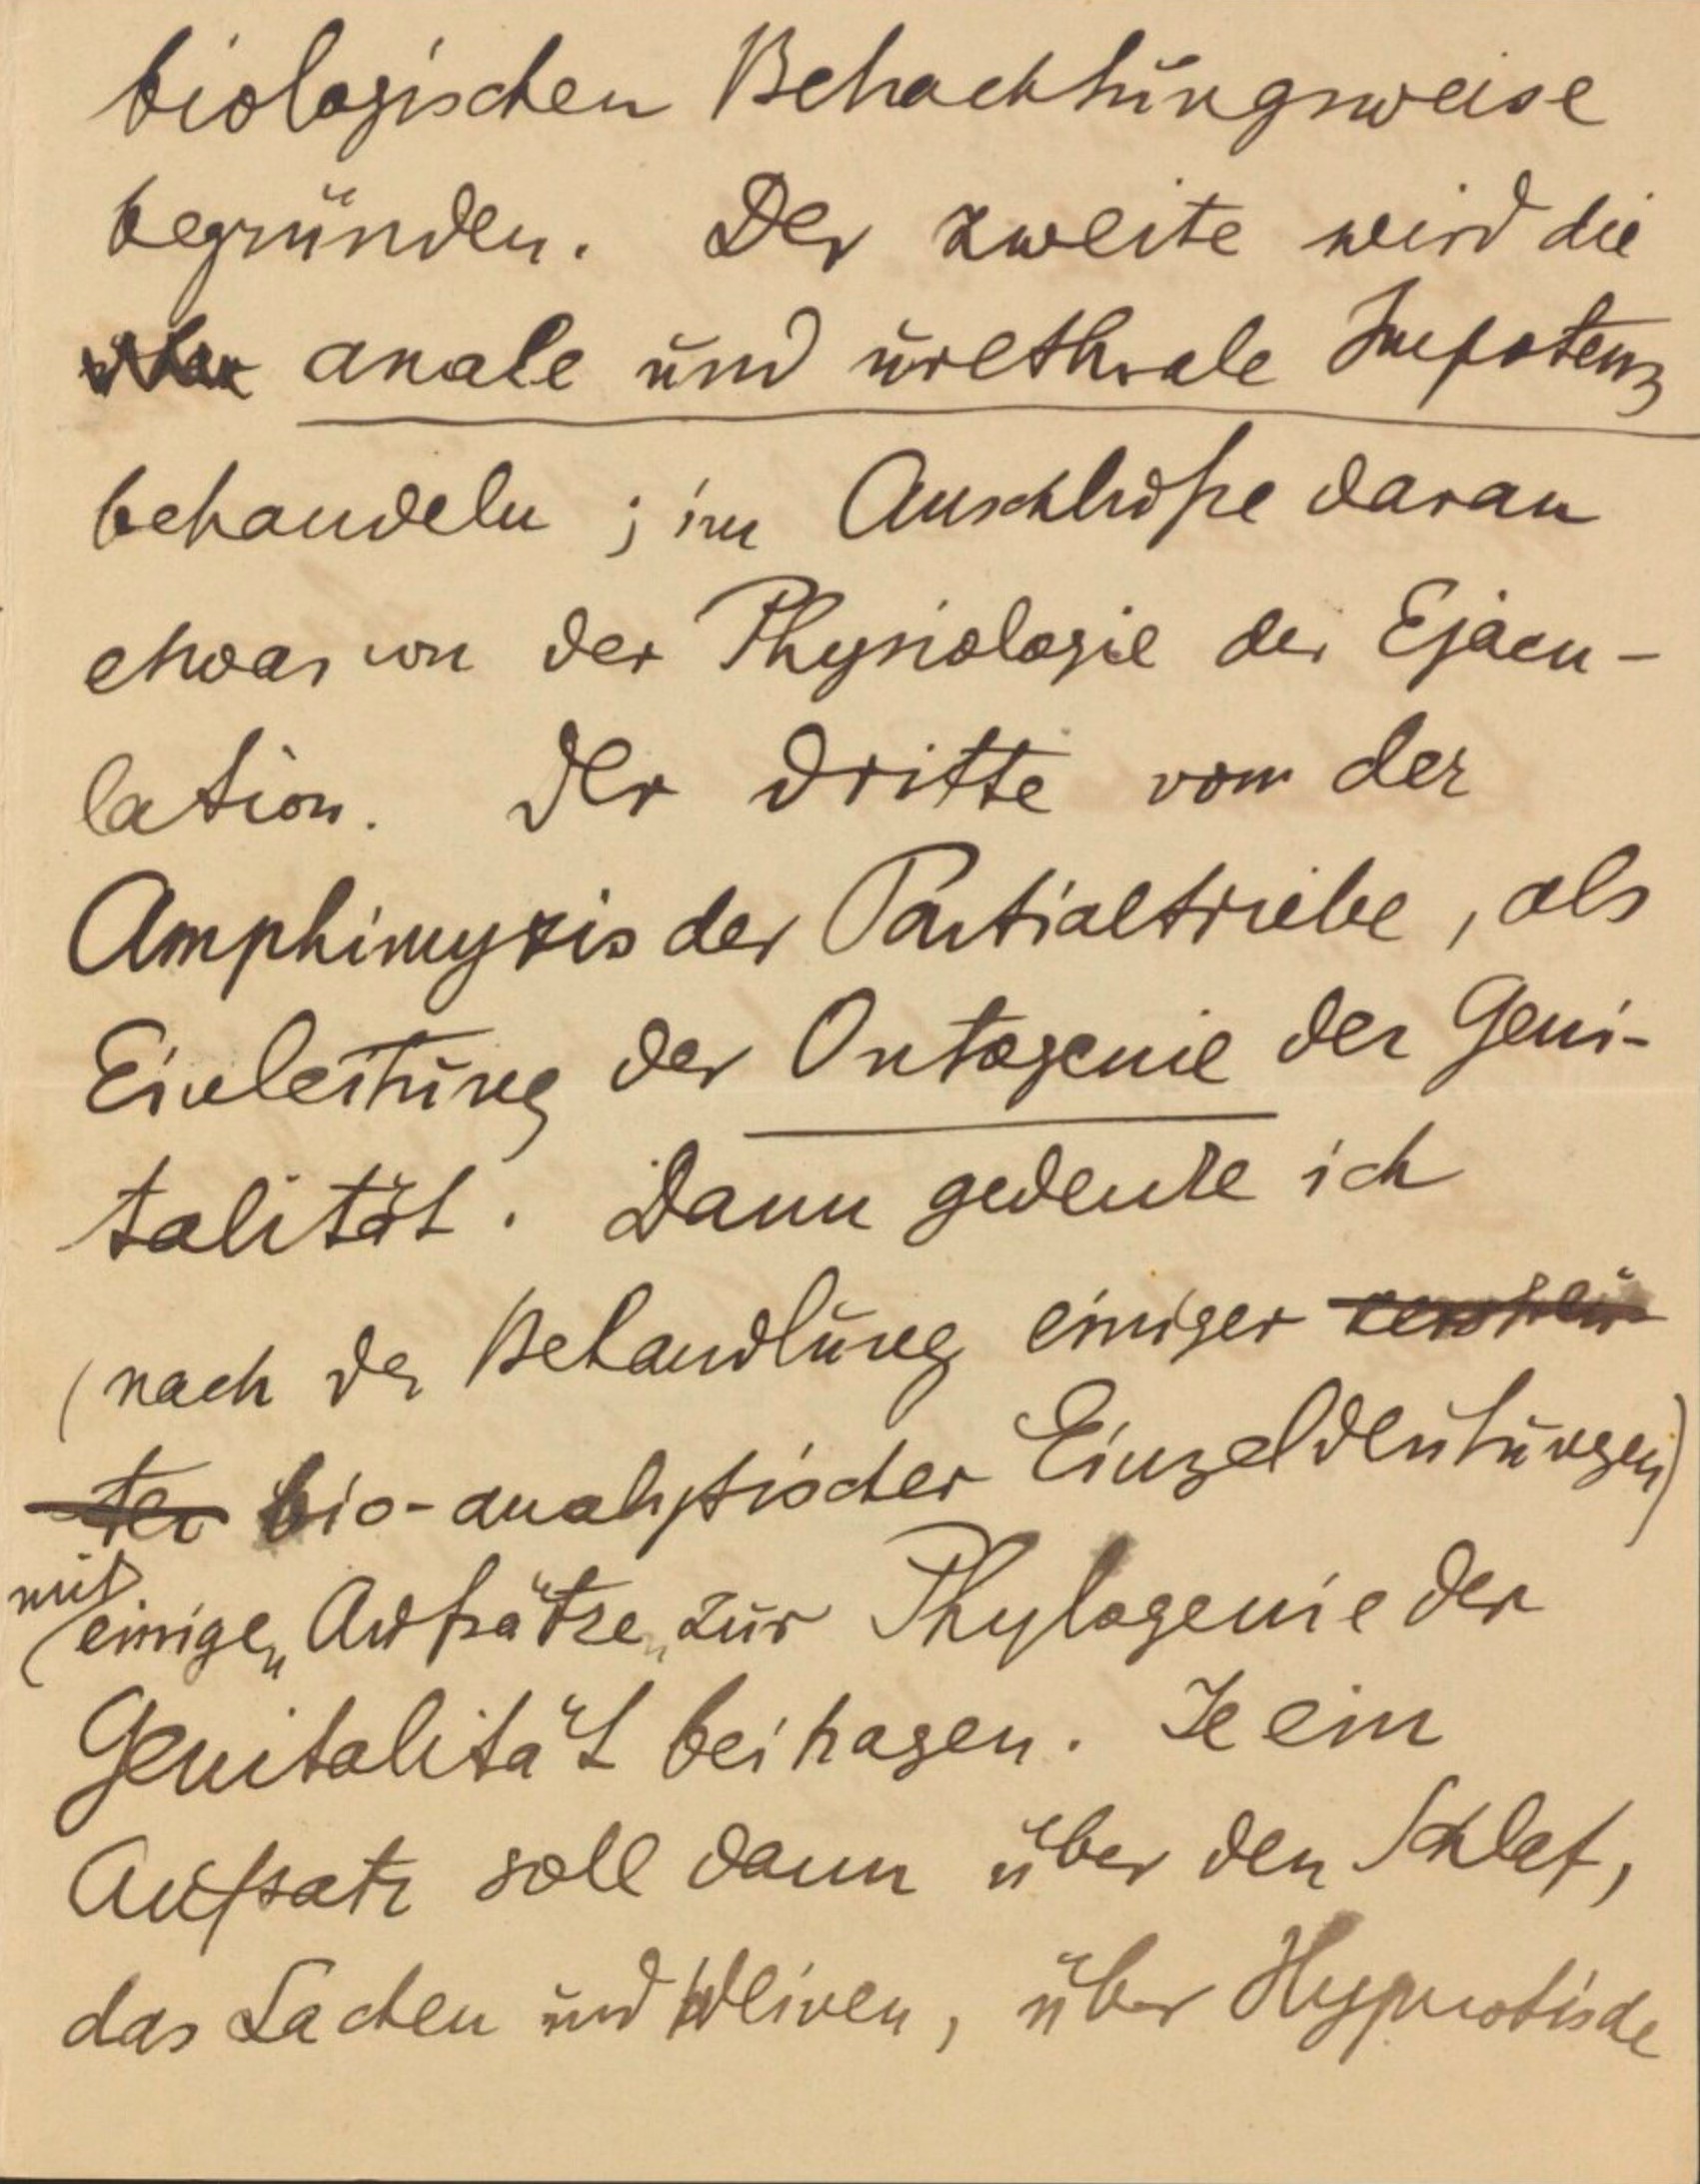 biologischen Betrachtungsweise
begründen. Der zweite wird die
anale und urethrale Impotenz
behandeln ; im Anschluße daran
etwas von der Physiologie der Ejacu-
lation. Der dritte von der
Amphimyxis der Partialtriebe, als
Einleitung der Ontogenie der Geni-
talität. Dann gedenke ich
(nach der Behandlung einiger
ter bio-analytischer Einzeldeutungen)
mit
einigen Aufsätzen zur Phylogenie der
Genitalität beitragen. Je ein
Aufsatz soll dann über den Schlaf,
das Lachen und Weinen, über Hypnotische